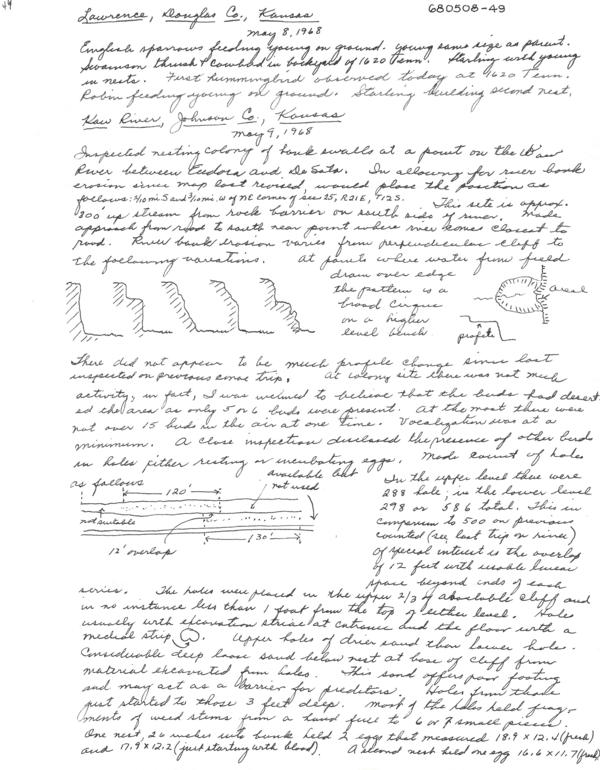 49
680508-49
Lawrence, Douglas Co., Kansas
May 8, 1968
English sparrows feeding young on ground. Young same size as parent.
Swainson thrush & Cowbird in backyard of 1620 Tenn. Starling with young
in nests. First hummingbird observed today at 1620 Tenn.
Robin feeding young on ground. Starling building second nest.
Kaw River, Johnson Co., Kansas
May 9, 1968
Inspected nesting colony of bank swalls at a point on the Kaw
River between Eudora and DeSoto. In allowing for river bank
erosion since map last revised, would place the position as
follows: 4/10 mi. S and 3/10 mi. W of NE corner of sec 25, R21E, T12S. This site is approx.
300' up stream from rock barrier on south side of river. Made
approach from road to south near point where river comes closest to
road. River bank erosion varies from perpendicular cliff to
the following variations. At points where water from field
drain over edge
the pattern is a
broad Cirque
on a higher
level bench
areal
profile
There did not appear to be much profile change since last
inspected on previous canoe trip. At colony site there was not much
activity, in fact, I was inclined to believe that the birds had desert
ed the area as only 5 or 6 birds were present. At the most there were
not over 15 birds in the air at one time. Vocalization was at a
minimum. A close inspection disclosed the presence of other birds
in holes either resting or incubating eggs. Made count of holes
as follows
available but
not used
120'
not suitable
12' overlap
130'
In the upper level there were
288 hole; in the lower level
298 or 586 total. This in
comparison to 500 on previous
counted (see last trip on river)
Of special interest is the overlap
of 12 feet with usable linear
space beyond ends of each
series. The holes were placed in the upper 2/3 of available cliff and
in no instance less than 1 foot from the top of either level. Holes
usually with excavation striae at entrance and the floor with a
medial strip. Upper holes of drier sand than lower hole.
Considerable deep loose sand below nest at base of cliff from
material excavated from holes. This sand offers poor footing
and may act as a barrier for predators. Holes from those
just started to those 3 feet deep. Most of the holes held frag-
ments of weed stems from a hand full to 6 or 7 small pieces.
One nest, 26 inches into bank held 2 eggs that measured 18.9 x 12.4 (fresh)
and 17.9 x 12.2 (just starting with blood). A second nest held one egg 16.6 x 11.7 (fresh)